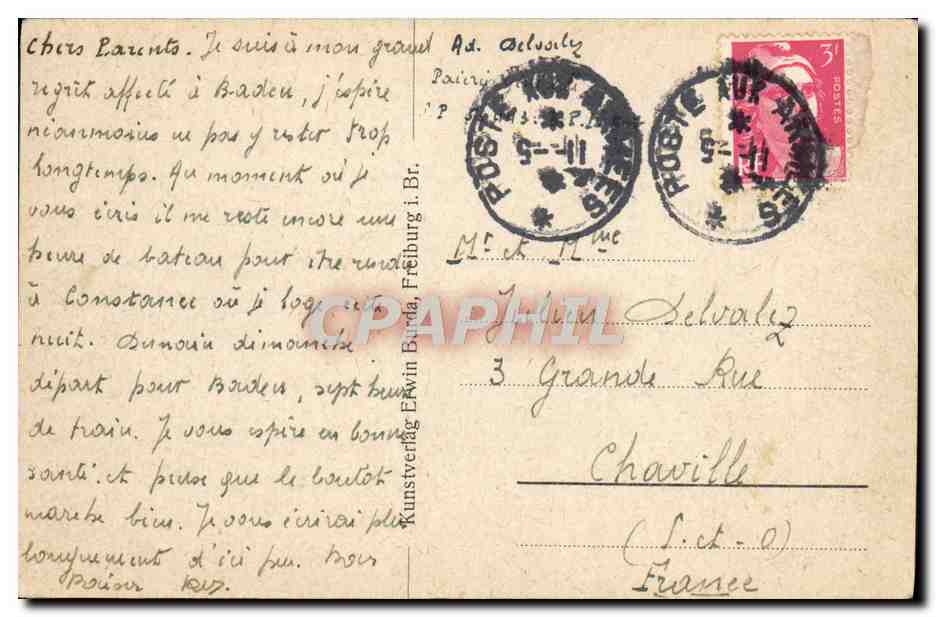 Chers Parents. Je suis à mon grand
regrêt affecté à Baden, j'espère
néanmoins ne pas y rester trop
longtemps. Au moment où je
vous écris il me reste encore une
heure de bateau pour être rendu
à Constance où je loge cette
nuit. Demain dimanche
départ pour Baden, sept heures
de train. Je vous espère en bonne
santé et pense que le boulot
marche bien. Je vous écrirai plus
longuement d'ici peu. Bons
Baisers
Kunstverlag Erwin Burda, Freiburg i. Br.
Ad. Delvalez
POSTE AUX ARMÉES
11-5
POSTE AUX ARMÉES
11-5
3F
POSTES
Mr et Mme
Julien Delvalez
3 Grande Rue
Chaville
(S.-et-O)
France
CPAPHIL